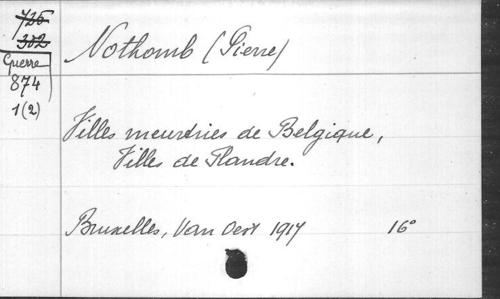 726
302
Guerre
874
1(2)
Nothomb (Pierre)
Villes meurtries de Belgique,
Villes de Flandre.
Bruxelles, Van Oest 1917 16°